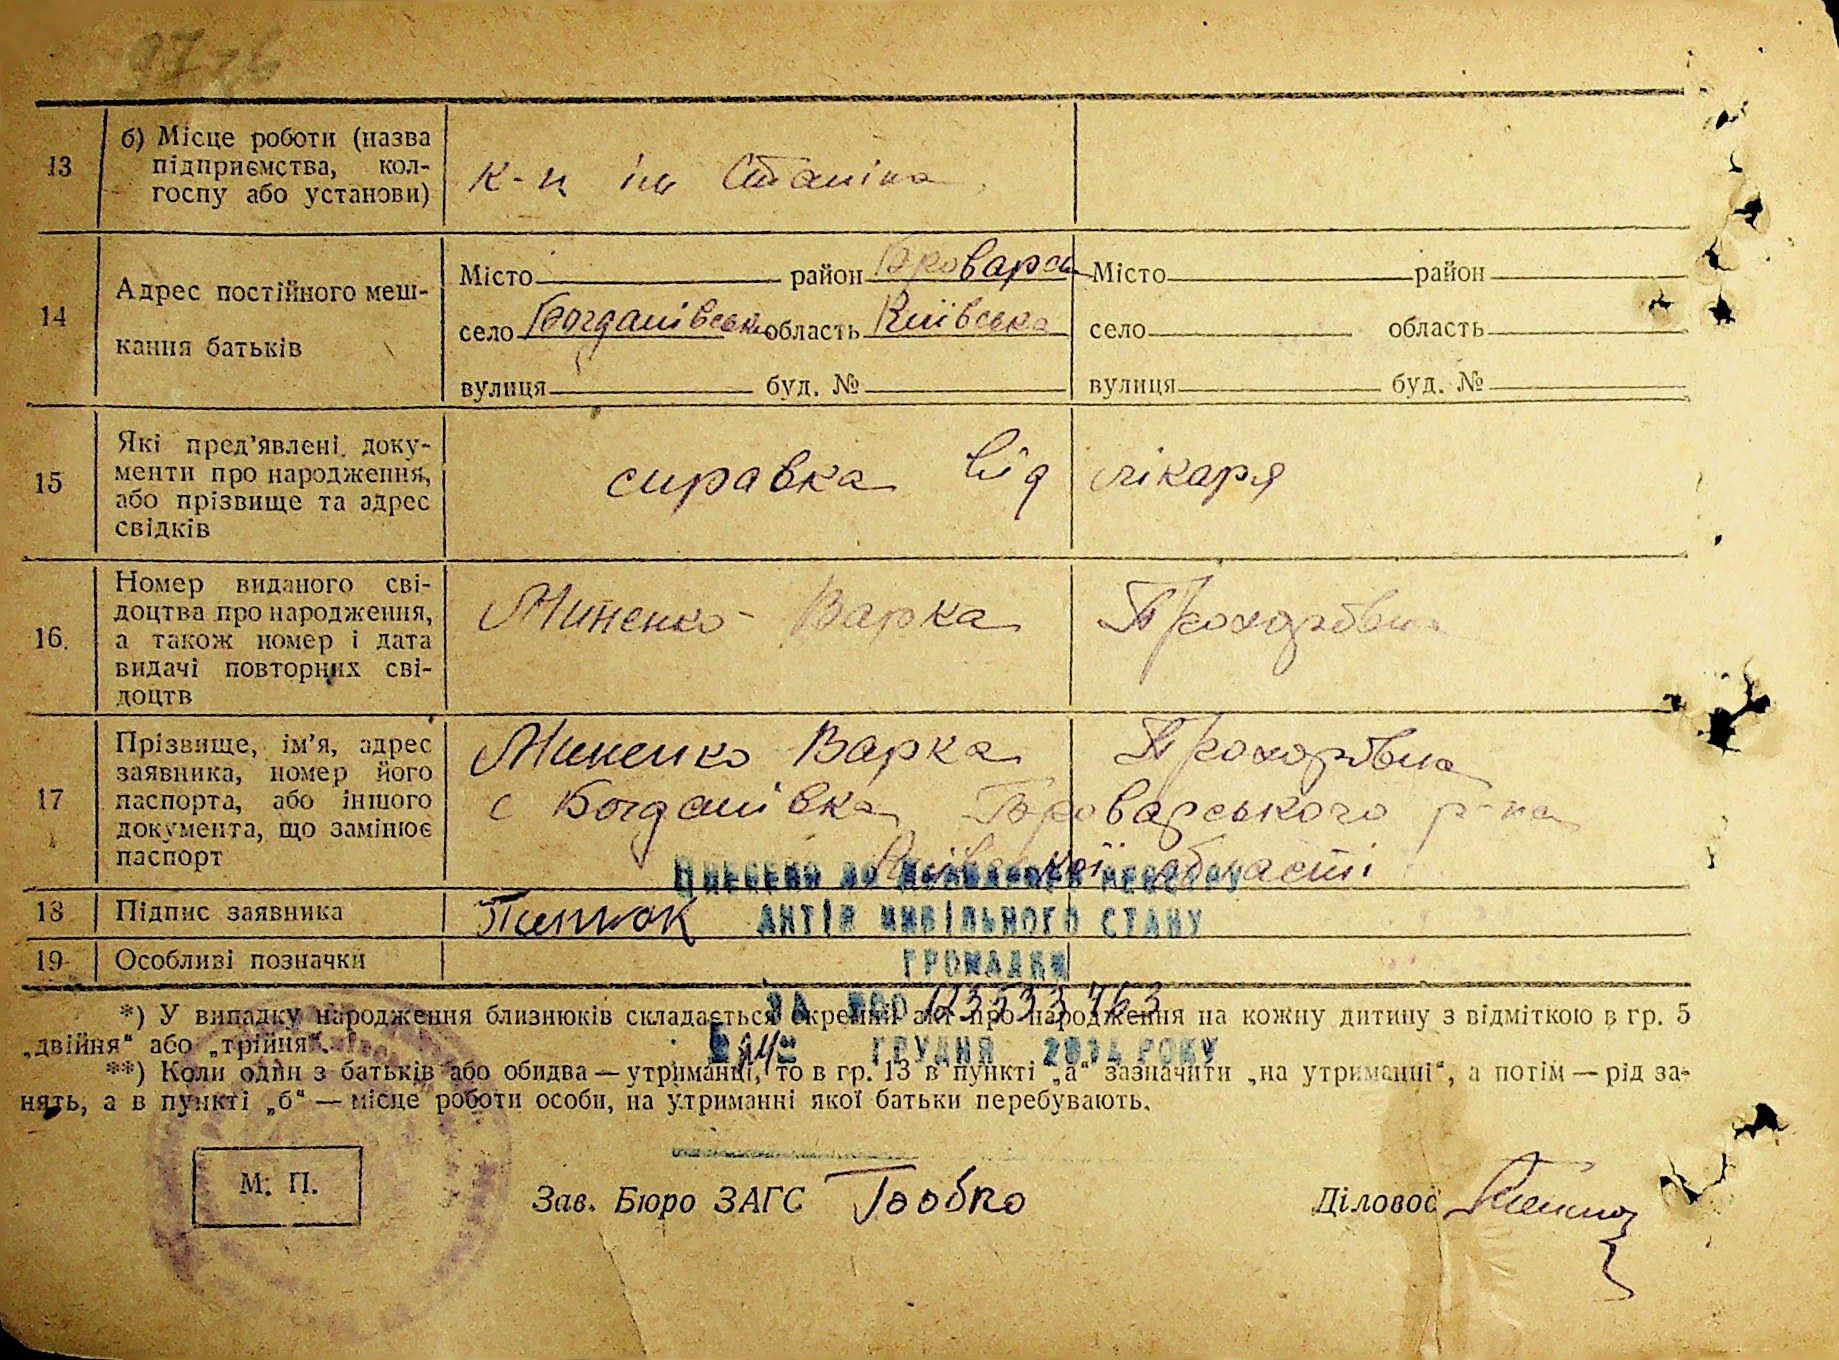 97 зв
13 б) Місце роботи (назва
підприємства, кол-
госпу або установи)
к-п ім Сталіна
14 Адрес постійного меш-
кання батьків
Місто район Броварсь Місто район
село Богданівськ область Київська село область
вулиця буд. № вулиця буд. №
15 Які пред'явлені доку-
менти про народження,
або прізвище та адрес
свідків
справка від лікаря
16. Номер виданого сві-
доцтва про народження,
а також номер і дата
видачі повторних сві-
доцтв
Миненко Варка Прохорівна
17 Прізвище, ім'я, адрес
заявника, номер його
паспорта, або іншого
документа, що замінює
паспорт
Миненко Варка Прохорівна
с Богданівка Броварського р-на
Київської області
18 Підпис заявника
19 Особливі позначки
Внесено до Державного реєстру
актів цивільного стану
громадян
за №00123533763
грудня 2014 року
*) У випадку народження близнюків складається окремий акт про народження на кожну дитину з відміткою в гр. 5
„двійня“ або „трійня“.
**) Коли один з батьків або обидва — утриманці, то в гр. 13 в пункті „а“ зазначити „на утриманні“, а потім — рід за-
нять, а в пункті „б“ — місце роботи особи, на утриманні якої батьки перебувають.
М. П.
Зав. Бюро ЗАГС Бобко Діловод